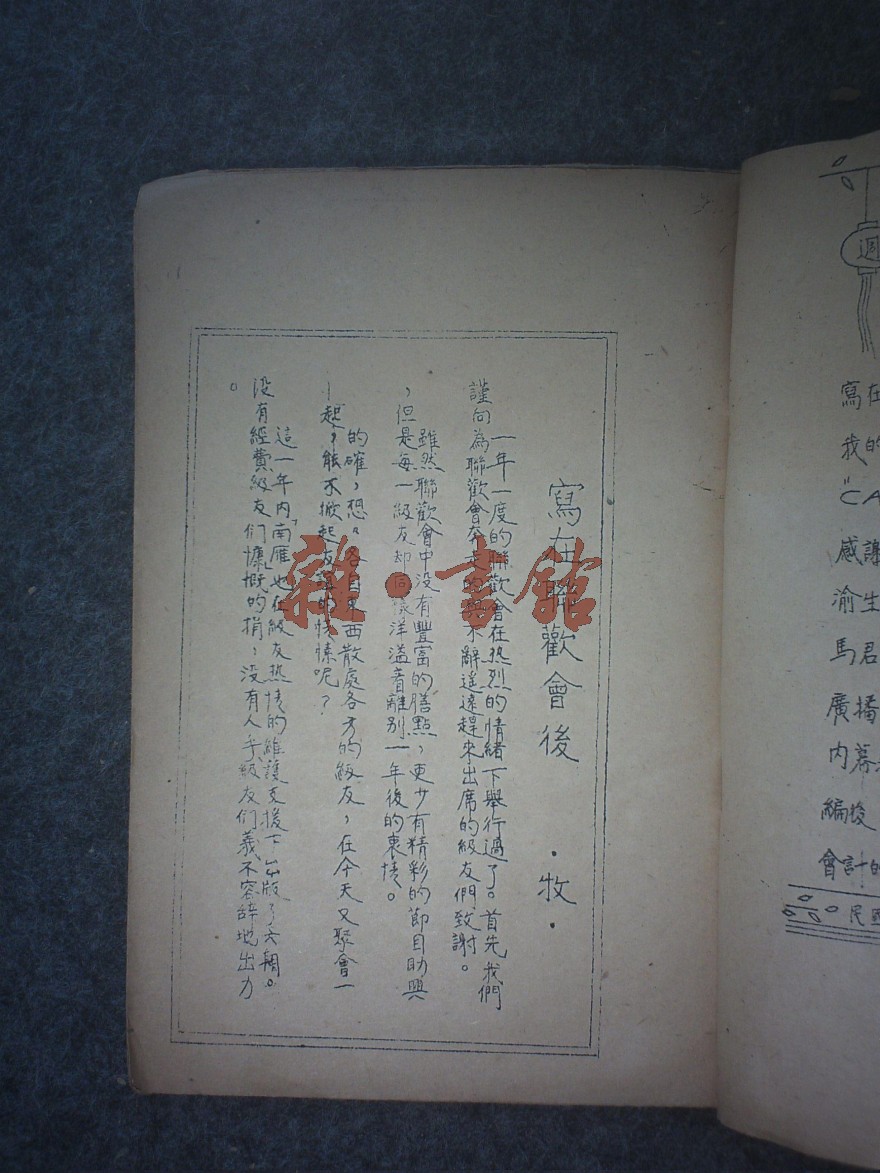 寫在聯歡會後 ·牧·
一年一度的聯歡會在热烈的情緒下舉行過了。首先我們
謹向為聯歡會奔走的 不辭遥遠趕來出席的級友們致謝。
雖然聯歡會中没有豐富的膳點，更少有精彩的節目助興
，但是每一級友却同懷洋溢着離別一年後的衷情。
的確，想。各自東西散處各方的級友，在今天又聚會一
起，能不掀起友誼的 呢？
這一年内「南雁」也在級友热情的維護支援下出版了六期。
没有經費級友們慷慨的捐，没有人手，級友們義不容辞地出力
。
雜·書館
週
寫在
我的
"CA
感謝
渝生
馬君
廣播
内幕
編後
會計的
民國